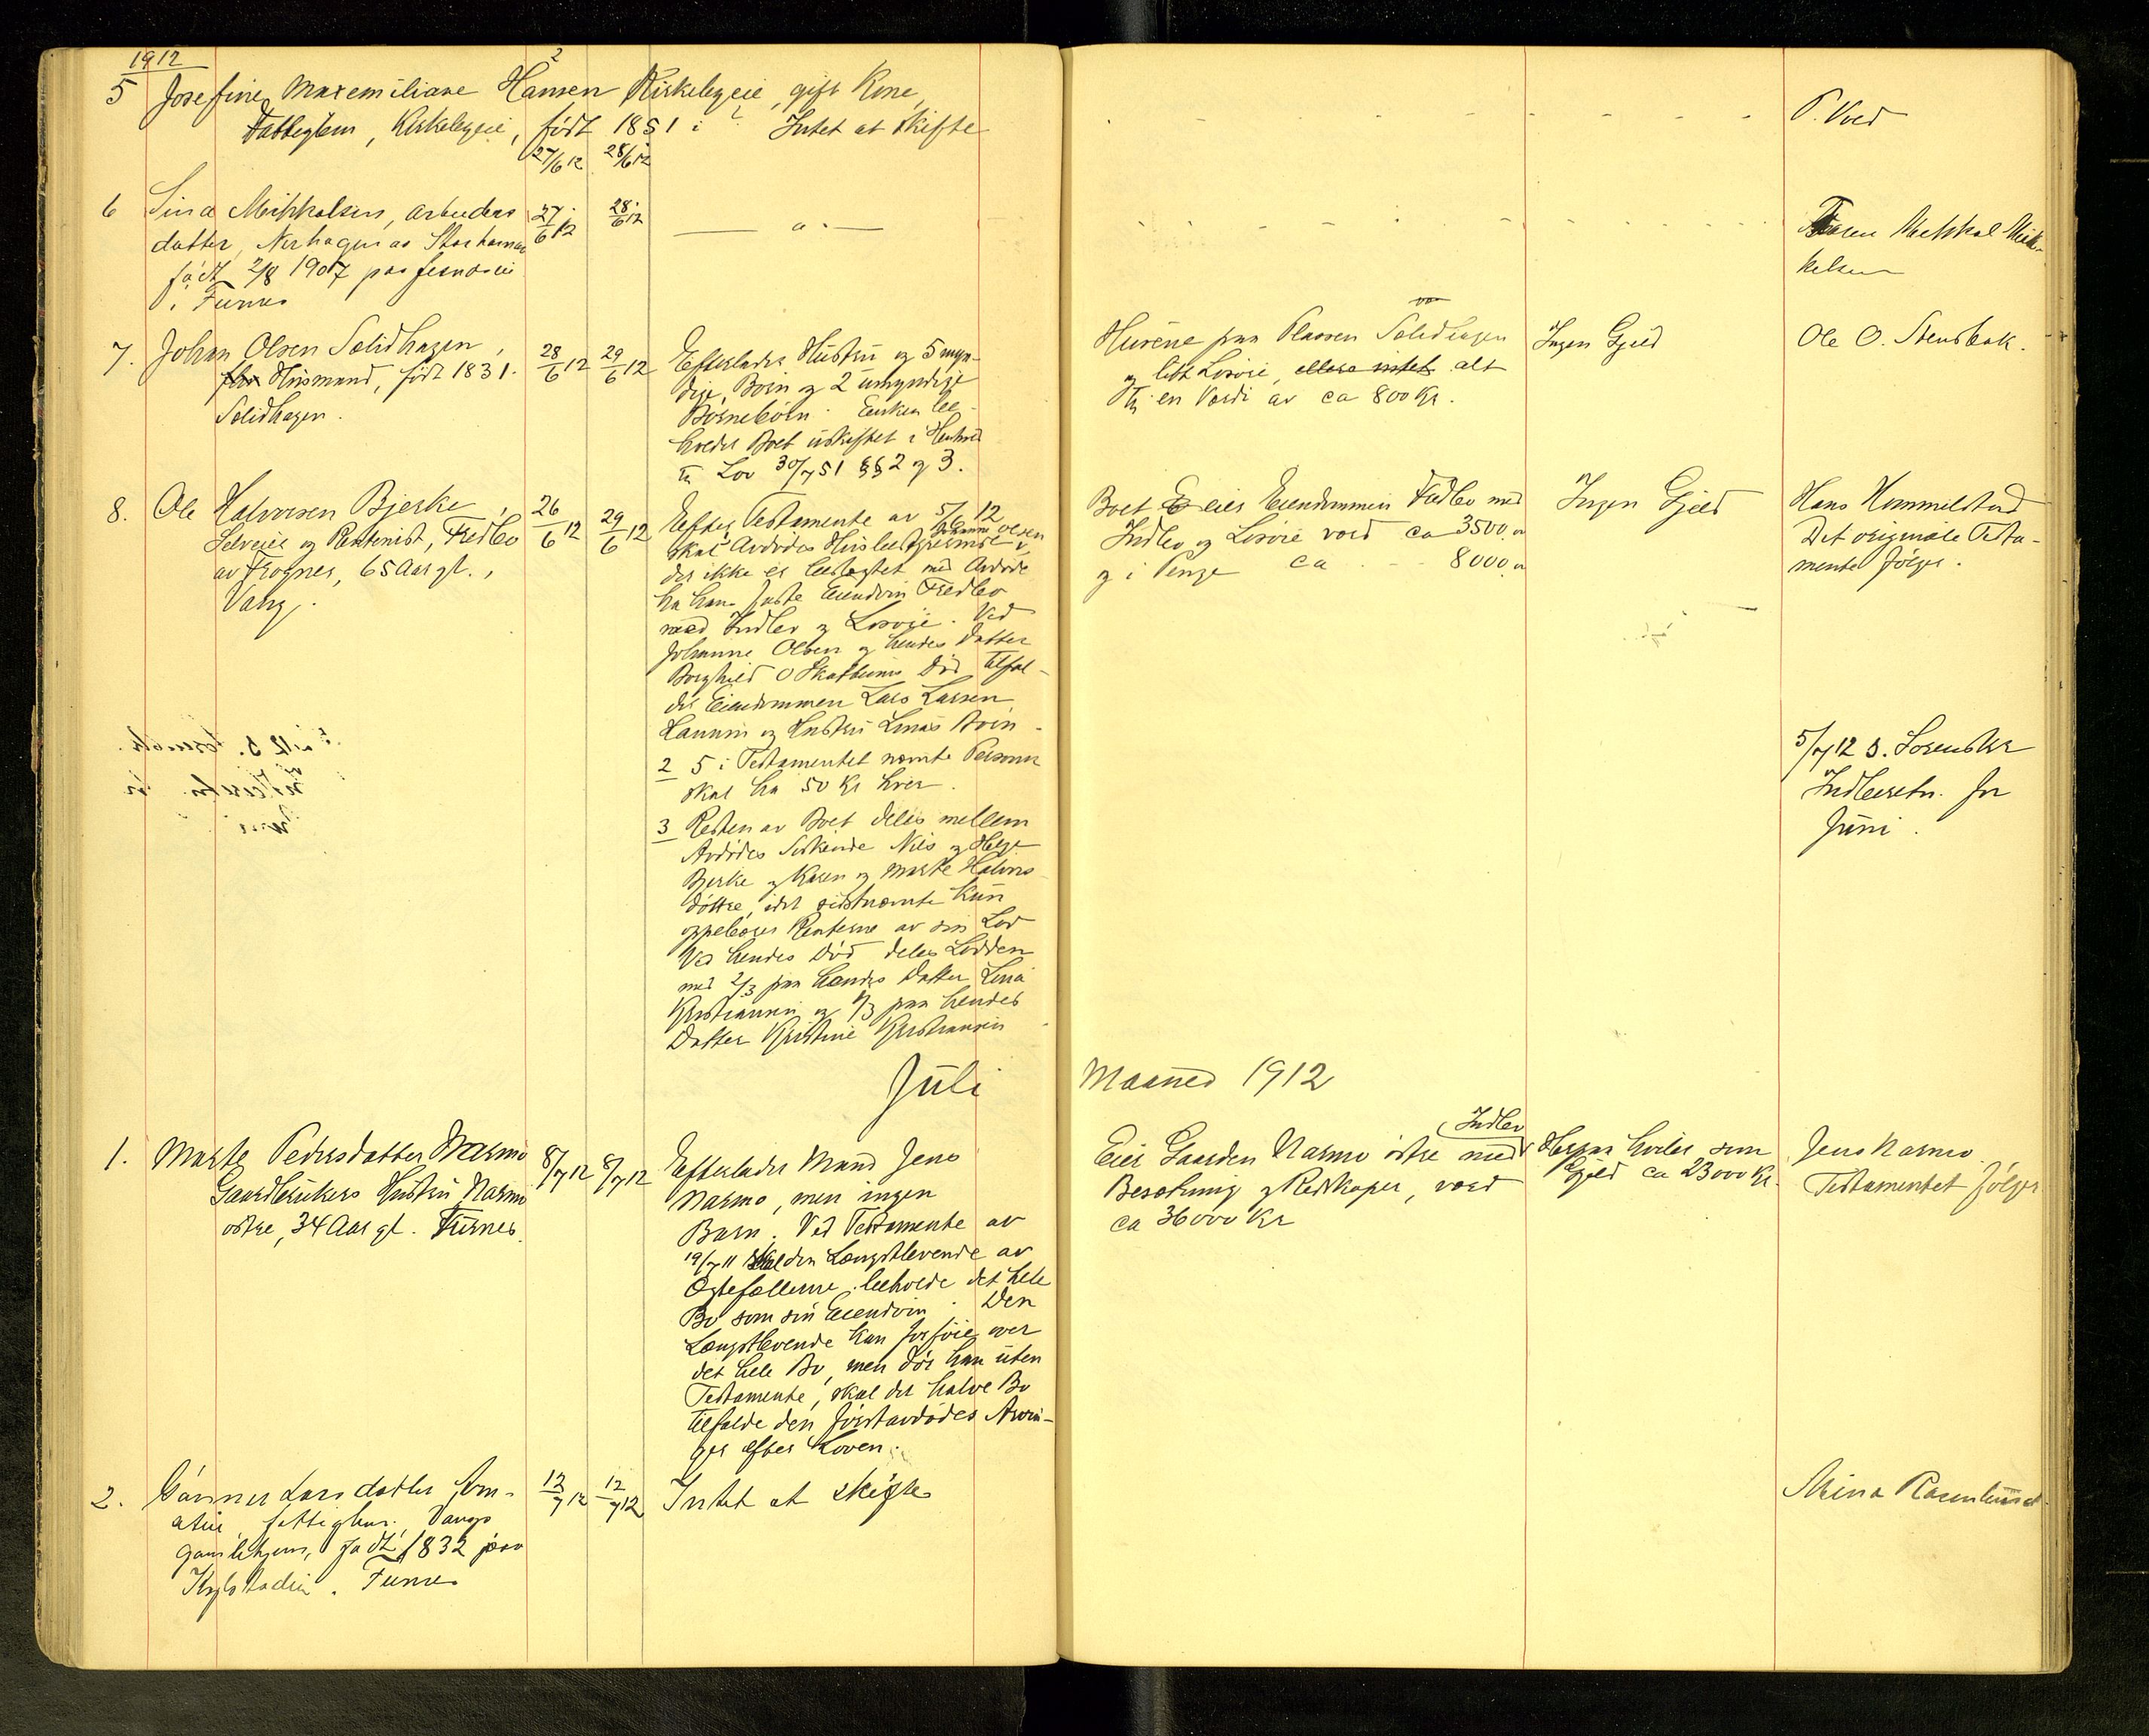 1912
5 Josefine Maxemiliane Hansen Kirkelygeie, gift Kone,
Fattiglem, Kirkelygeie, født 1851 i ? Intet at skifte
P. Vold
27/6 12 28/6 12
6 Lina Mikkelsen, arbeiders
datter, Nerhagen av Storhamar
født 2/8 1907 paa
i Furnes
27/6 12 28/6 12
— " —
Faren Mikkel Mik-
kelsen
7. Johan Olsen Solidhagen,
Husmand, født 1831.
Solidhagen.
28/6 12 29/6 12
Efterlader Hustru og 5 myn-
dige Børn og 2 umyndige
Børnebørn. Enken be-
holder Boet uskiftet i Henhold
til Lov 30/7 51 §§ 2 og 3.
Husene paa Plassen Solidhagen
og litt Løsøre, ellers intet alt
til en Værdi av ca 800 Kr.
Ingen Gjeld
Ole O. Stensbak.
8. Ole Halvorsen Bjerke,
Selveier og Rentenist, Fredbo
av Frogner, 65 Aar gl.,
Vang.
26/6 12 29/6 12
Efter Testamente av 5/6 12
skal Avdødes Husbestyrerinde Johanne Olsen
der ikke er beslegtet med Avdøde
ha hans faste Eiendom Fredbo
med Indbo og Løsøre. Ved
Johanne Olsen og hendes Datter
Borghild O Skatbums Død tilfal-
der Eiendommen Lars Larsen
Hanum og Hustru Linas Børn.
2 5 i Testamentet nævnte Personer
skal ha 50 Kr hver.
3 Resten av Boet deles mellem
Avdødes Søskende Nils og Helge
Bjerke og Karen og Marte Halvors-
døttre, idet sidstnævnte kun
oppebærer Renterne av sin Lod
Ved hendes Død deles Lodden
med 2/3 paa hendes Datter Lina
Kristiansen og 1/3 paa hendes
Datter Kristine Kristiansen
Boet eier Eiendommen Fredbo med
Indbo og Løsøre værd ca 3500 "
og i Penge ca - - 8000 "
Ingen Gjeld
Hans Hommelstad
Det originale Testa-
mente følger.
5/7 12 s. Sorenskr
Indberetn. for
Juni.
Juli Maaned 1912
1. Marte Pedersdatter Narmo
Gaardbrukers Hustru Narmo
østre, 34 Aar gl. Furnes.
8/7 12 8/7 12
Efterlader Mand Jens
Narmo, men ingen
Barn. Ved Testamente av
19/7 11 skal den Længstlevende av
Ægtefællerne beholde det hele
Bo som sin Eiendom. Den
Længstlevende kan forføie over
det hele Bo, men dør han uten
Testamente, skal det halve Bo
tilfalde den førstavdødes Arvin-
ger efter Loven.
Eier Gaarden Narmo østre med Indbo
Besætning og Redskaper, værd
ca 36000 Kr
Herpaa hviler som
Gjeld ca 23000 Kr.
Jens Narmo.
Testamentet følger
2. Gunner Larsdatter
fattighus. Vangs
gamlehjem, født 1832 paa
Furnes
12/7 12 12/7 12
Intet at skifte
Mina Rosenlund.